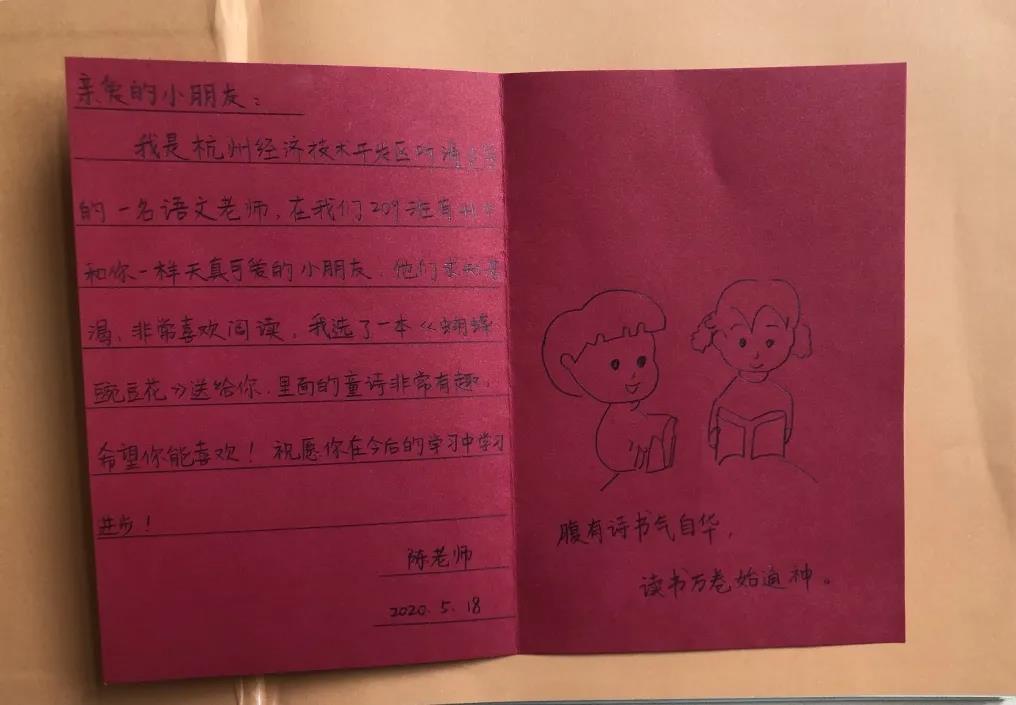 亲爱的小朋友：
我是杭州经济技术开发区听涛小学
的一名语文老师，在我们209班有
和你一样天真可爱的小朋友，他们求知若
渴，非常喜欢阅读，我选了一本《蝴蝶
豌豆花》送给你，里面的童诗非常有趣，
希望你能喜欢！祝愿你在今后的学习中学习
进步！
陈老师
2020.5.18
腹有诗书气自华，
读书万卷始通神。